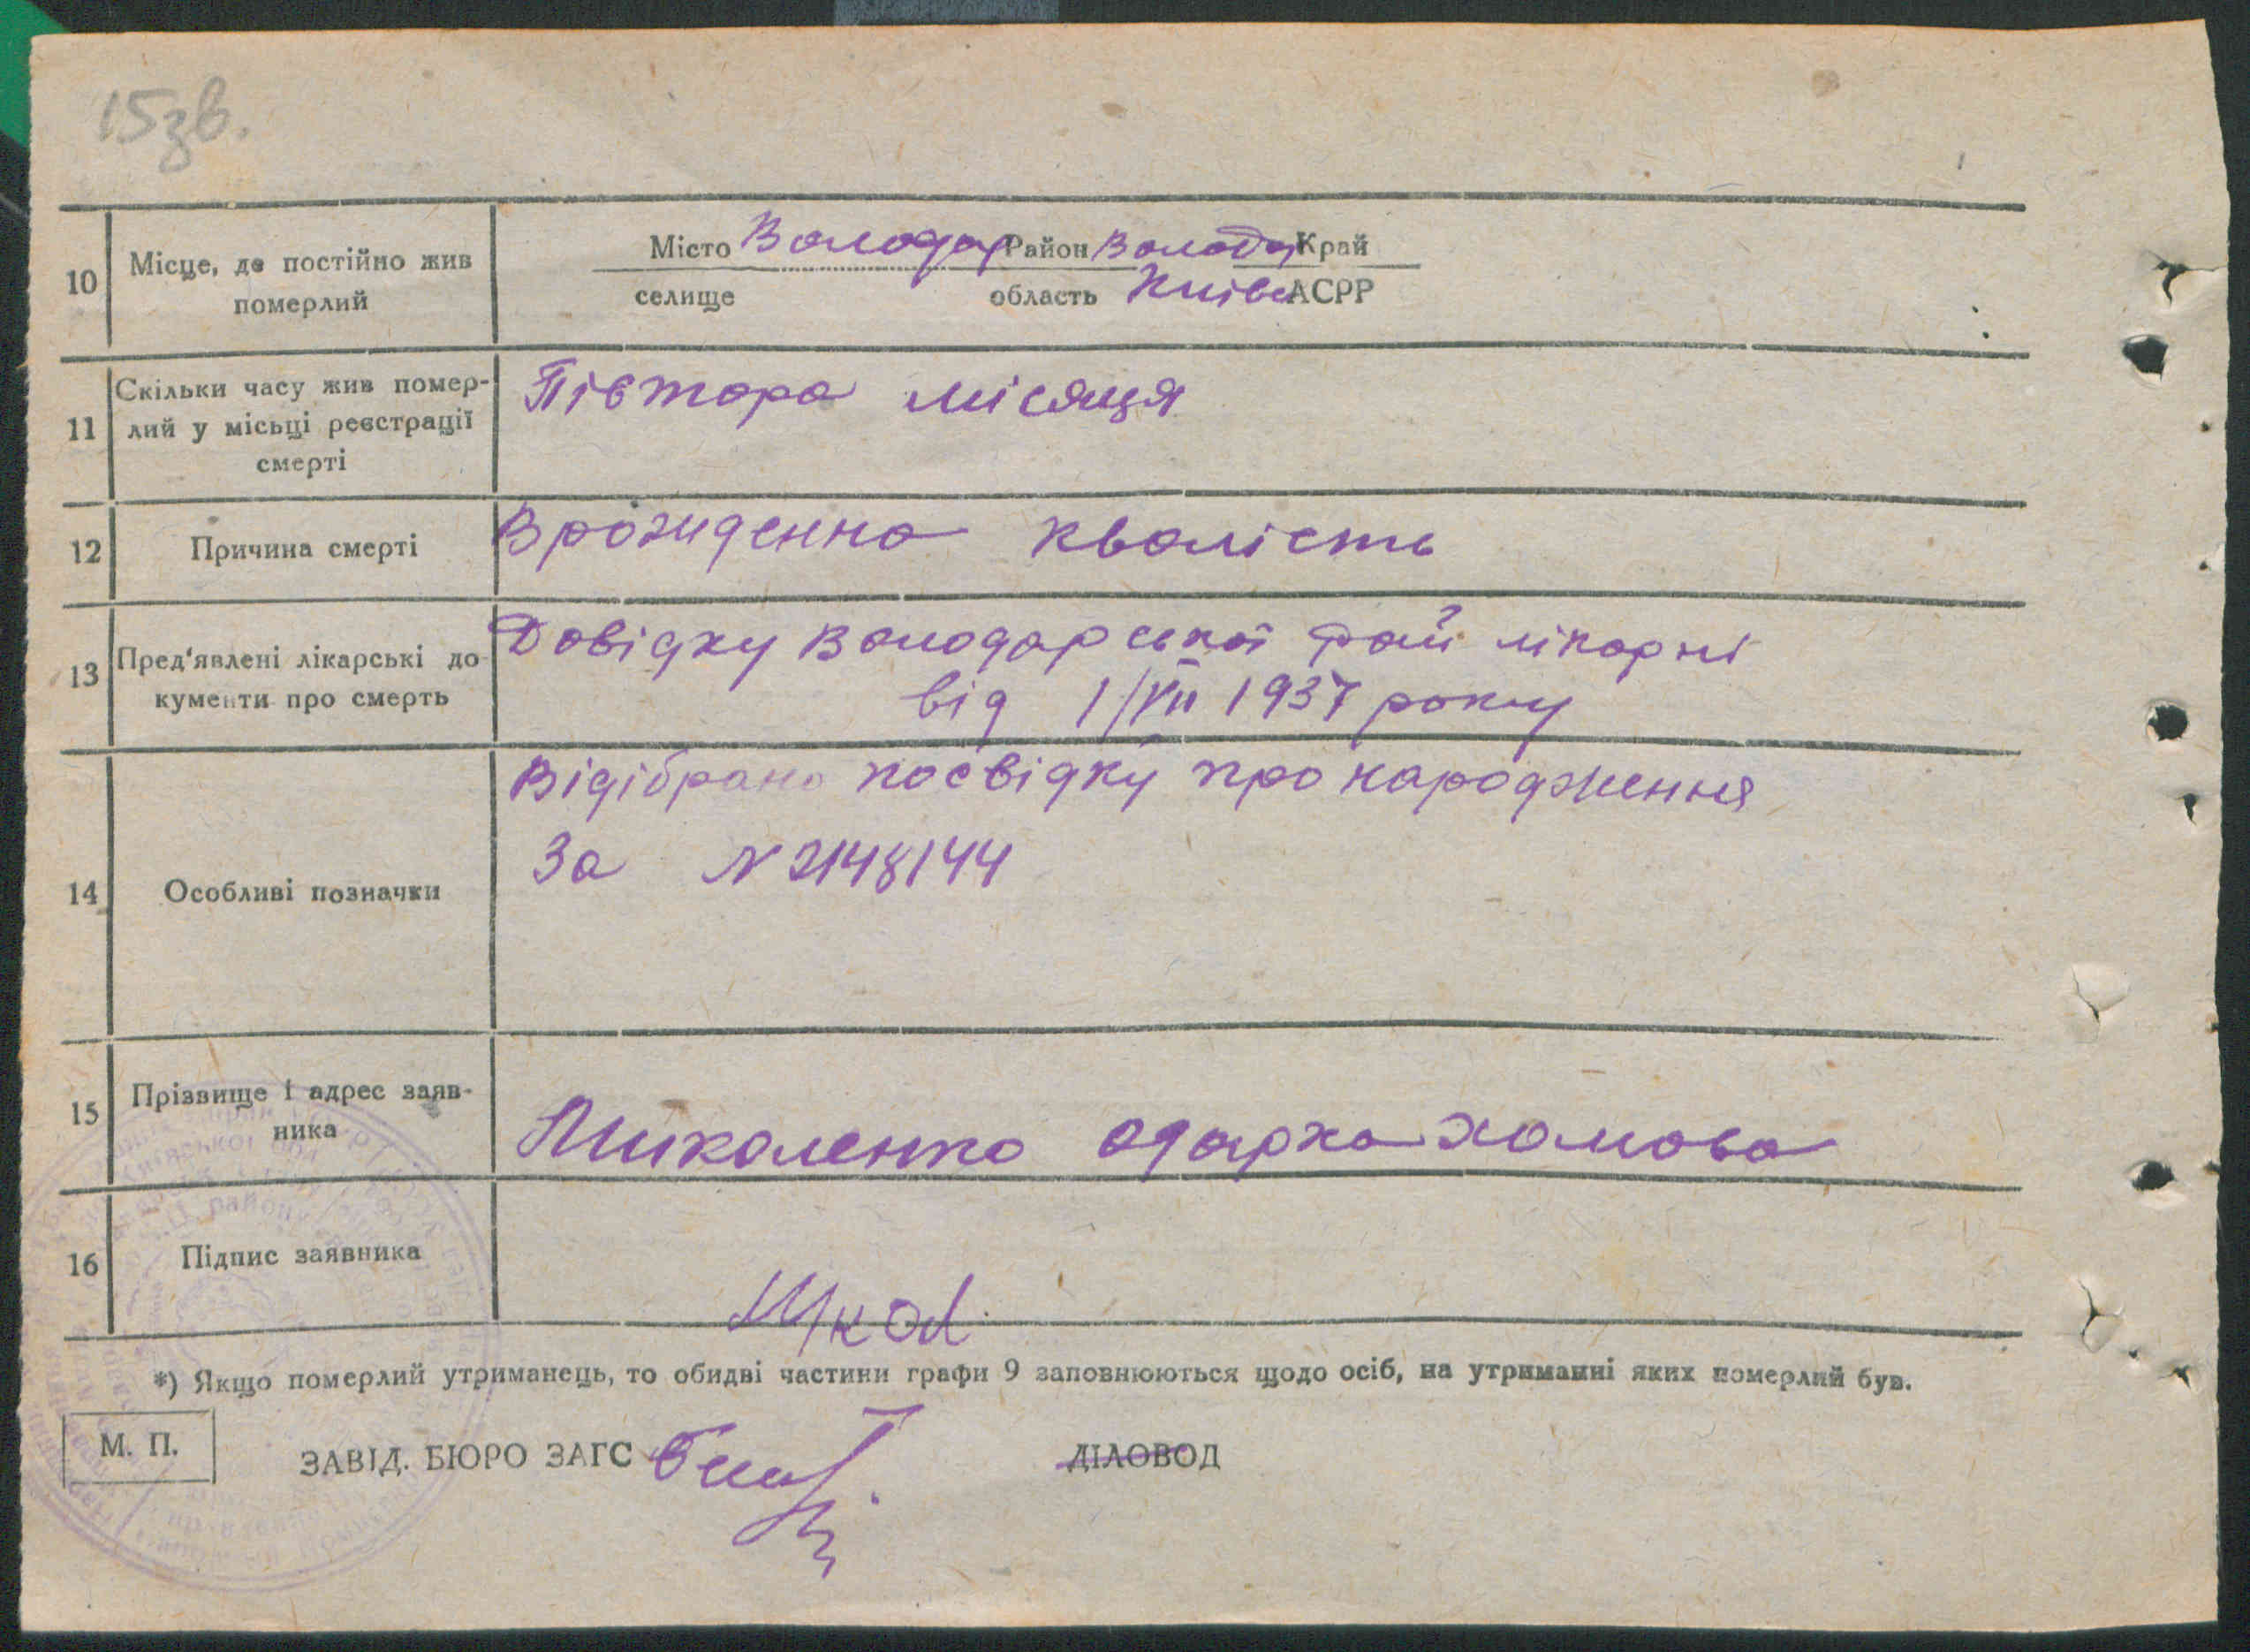 15зв.
10 Місце, де постійно жив померлий
Місто Володар Район Волода Край
селище область Київс АСРР
11 Скільки часу жив помер-
лий у місьці реєстрації
смерті
Півтора місяця
12 Причина смерті Врожиденна кволість
13 Пред'явлені лікарські до
кументи про смерть
Довідку Володарської рай лікарні
від 1/VII 1937 року
14 Особливі позначки
Відібрано посвідку про народження
За N 2148144
15 Прізвище і адрес заяв-
ника
Миколенко Одарка Хомова
16 Підпис заявника
*) Якщо померлий утриманець, то обидві частини графи 9 заповнюються щодо осіб, на утриманні яких померлий був.
М. П. ЗАВІД. БЮРО ЗАГС ДІЛОВОД